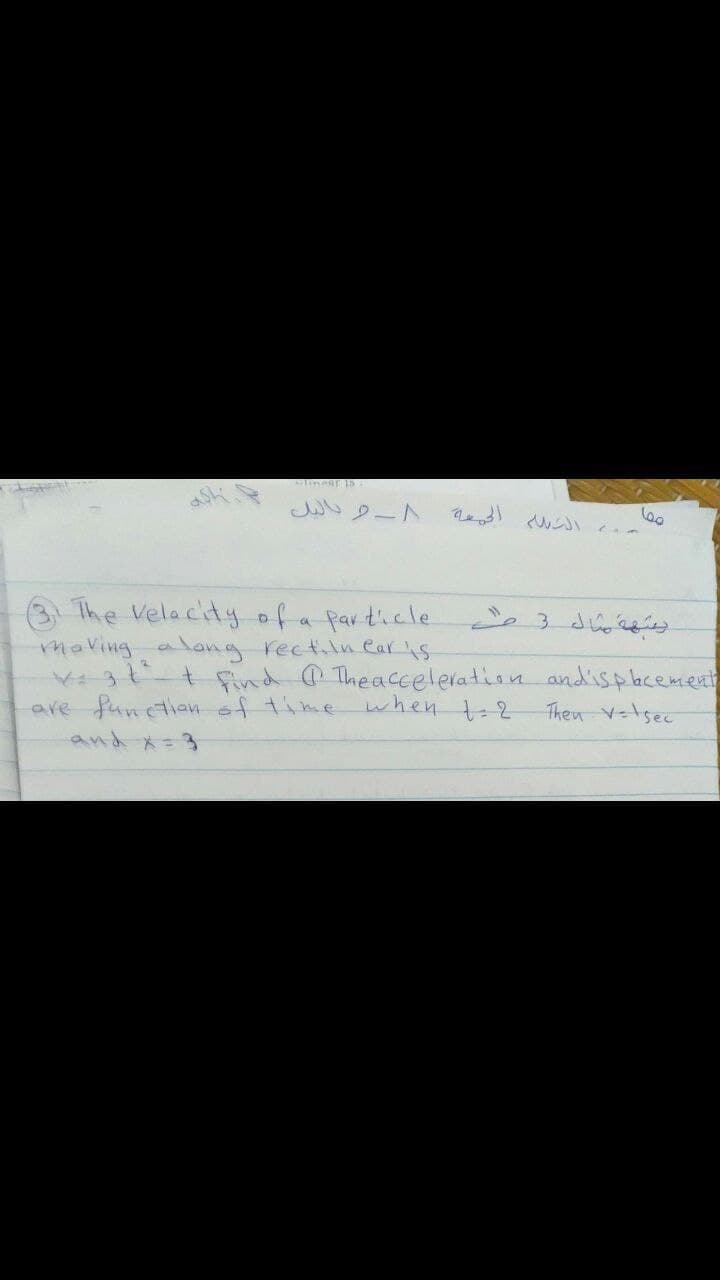 الجمعة ٨ - ٩ بالليل
③ The Velocity of a particle
moving along rectilnear is
v = 3t² - t find ① The acceleration and isplacement
are function of time when t=2 Then v=1sec
and x = 3